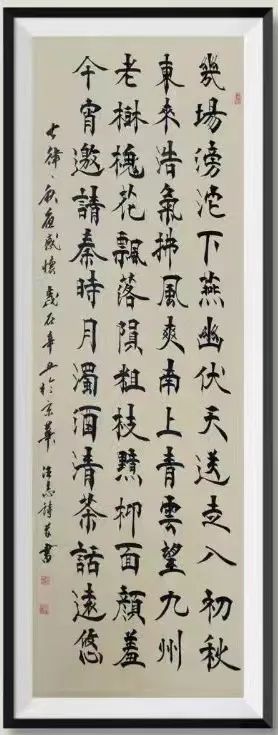 幾場滂沱下燕幽伏天送走入初秋
東來浩氣拂風爽南上青雲望九州
老樹槐花飄落隕粗枝柳面顏羞
今宵邀請秦時月濁酒清茶話遠悠
七律、秋夜感懷 歲在辛丑於京華 志詩并書